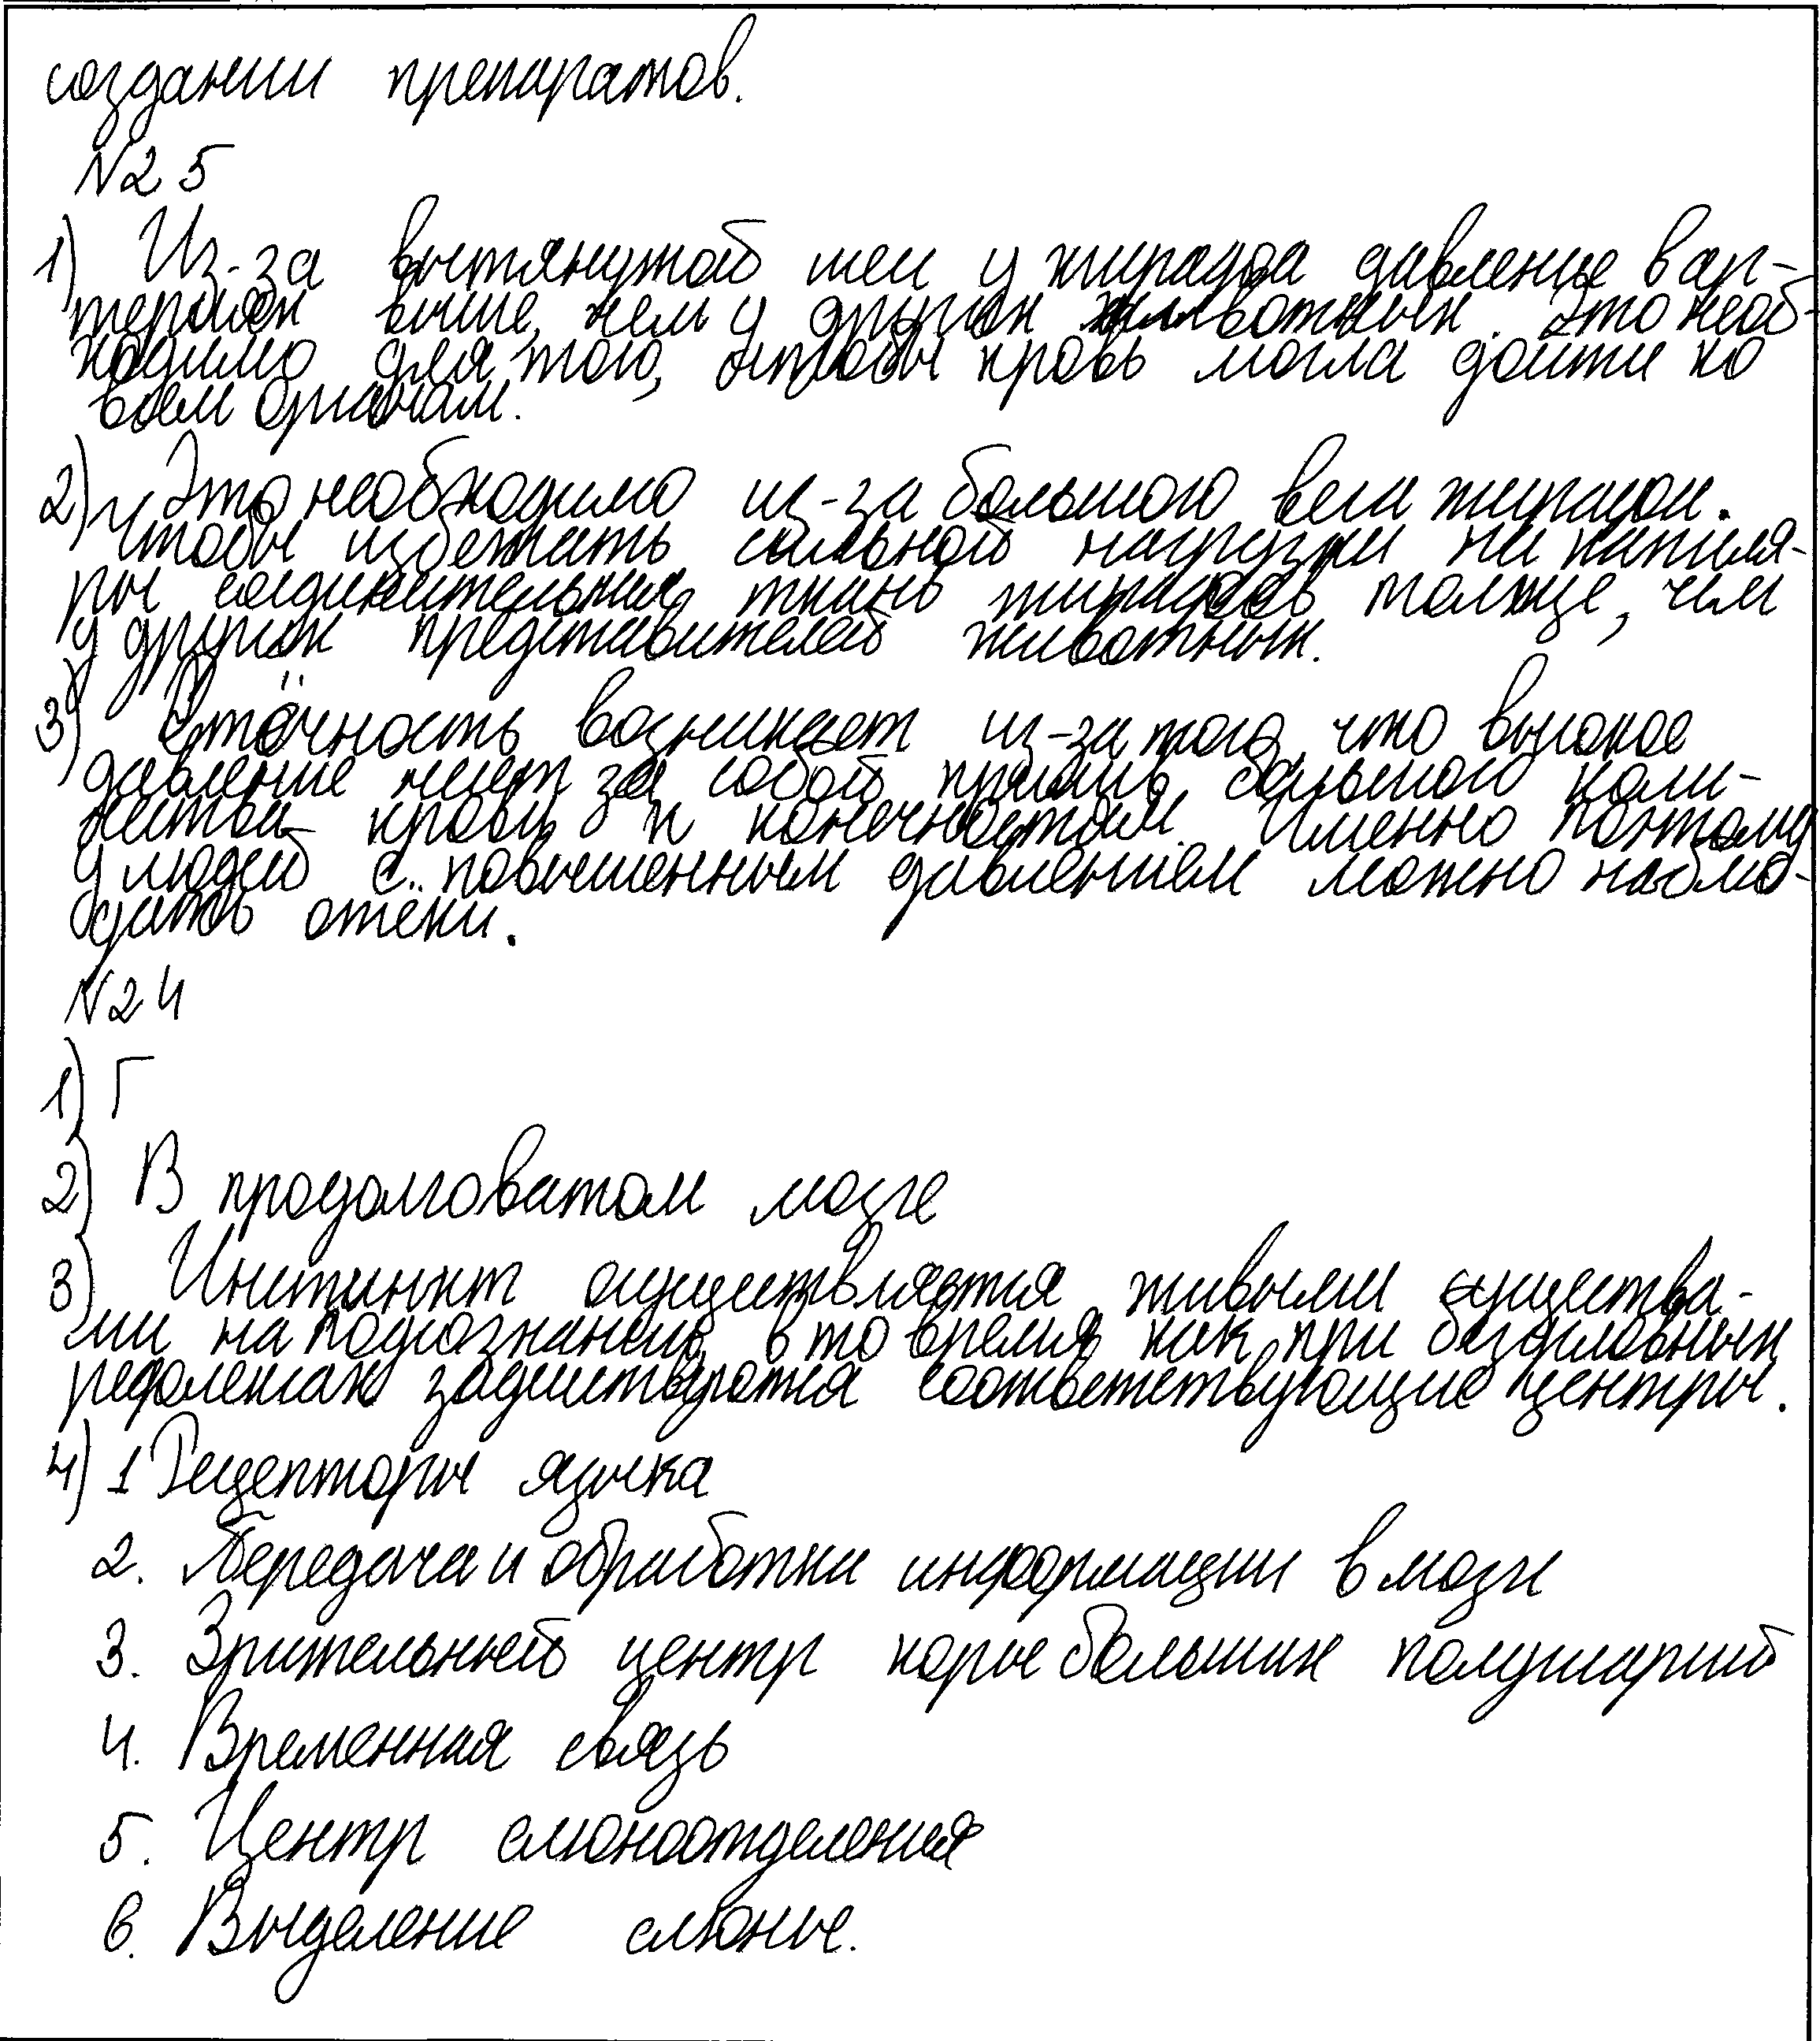 создании препаратов.
N25
1) Из-за вытянутой шеи у жирафа давление в ар-
териях выше, чем у других животных. Это необ-
ходимо для того, чтобы кровь могла дойти ко
всем органам.
2) Это необходимо из-за большого веса жирафов.
Чтобы избежать сильной нагрузки на капиля-
ры соединительная ткань жирафов толще, чем
у других представителей животных.
3) Отёчность возникает из-за того, что высокое
давление несет за собой прилив большого коли-
чества крови к конечностям. Именно поэтому
у людей с повышенным давлением можно наблю-
дать отеки.
N24
1) Г
2) В продолговатом мозге
3) Инстинкт осуществляется живыми существа-
ми на подсознании, в то время как при безусловных
рефлексах задействуются соответствующие центры.
4) 1 Рецепторы языка
2. Передача и обработка информации в мозге
3. Зрительный центр коры больших полушарий
4. Временная связь
5. Центр слюноотделения
6. Выделение слюны.